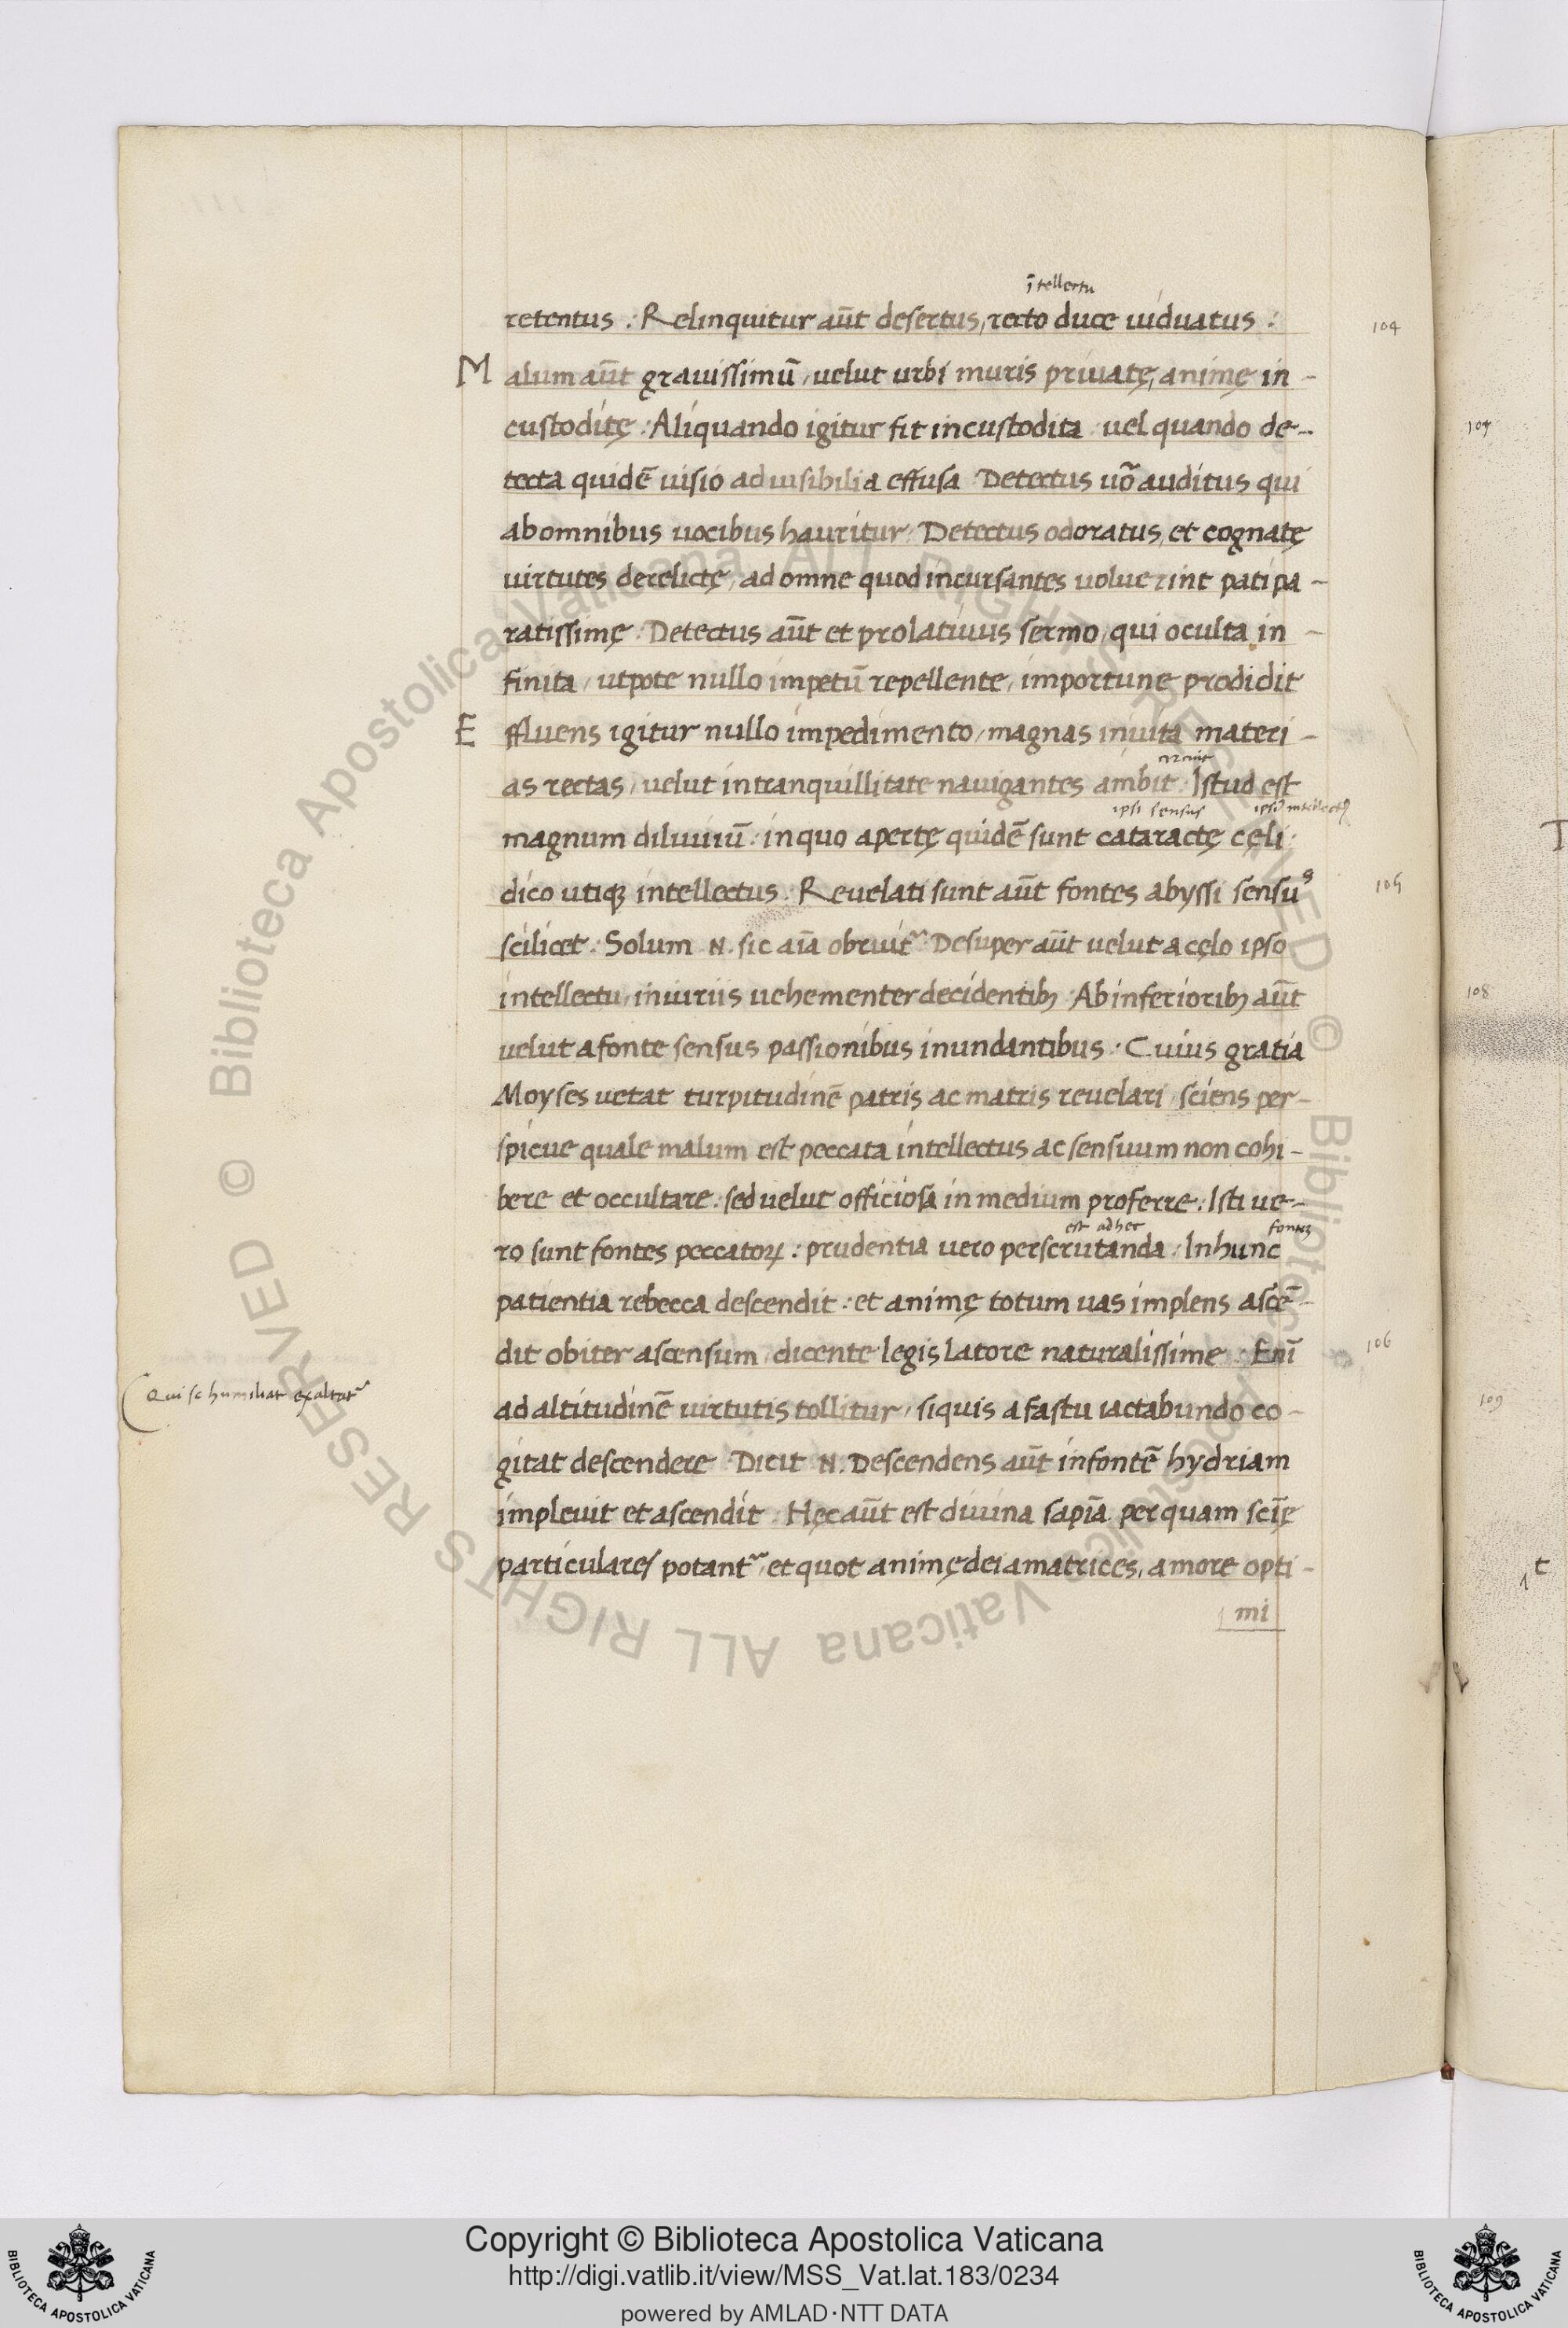 ītellectu
retentus : Relinquitur aūt desertus, recto duce uiduatus :
104
Malum aūt grauissimū, uelut urbi muris priuatę, animę in-
custoditę : Aliquando igitur fit incustodita : uel quando de-
tecta quidē uisio ad uisibilia effusa Detectus uō auditus qui
ab omnibus uocibus hauritur : Detectus odoratus, et cognatę
uirtutes derelictę, ad omne quod incursantes uoluerint pati pa-
ratissimę : Detectus aūt et prolatiuus sermo, qui oculta in-
finita, utpote nullo impetū repellente, importune prodidit
Effluens igitur nullo impedimento, magnas inuita materi-
as rectas, uelut in tranquillitate nauigantes ambit : Istud est
ipsi sensus
magnum diluuiū : in quo apertę quidē sunt cataractę cęli :
dico utiqꝫ intellectus : Reuelati sunt aūt fontes abyssi sensuˢ
105
scilicet : Solum .N. sic aīa obruitʳ Desuper aūt uelut a cęlo ipso
intellectu, iniuriis uehementer decidentibꝫ : Ab inferioribꝫ aūt
uelut a fonte sensus passionibus inundantibus : Cuius gratia
Moyses uetat turpitudinē patris ac matris reuelari, sciens per-
spicue quale malum est peccata intellectus ac sensuum non cohi-
bere et occultare : sed uelut officiosa in medium proferre : Isti ue-
est adhec
ro sunt fontes peccatoꝝ : prudentia uero perscrutanda : In hunc
patientia rebecca descendit : et animę totum uas implens ascē-
dit obiter ascensum, dicente legis latore naturalissime : Enī
106
ad altitudinē uirtutis tollitur, siquis a fastu iactabundo co-
Qui se humiliat exaltatʳ
gitat descendere : Dicit .N. Descendens aūt in fontē hydriam
impleuit et ascendit : Hęc aūt est diuina sapīa per quam scīę
particulares potantʳ, et quot animę dei amatrices, amore opti-
mi
107
108
109
T
t
© Biblioteca Apostolica Vaticana ALL RIGHTS RESERVED © Biblioteca Apostolica Vaticana ALL RIGHTS RESERVED
BIBLIOTECA APOSTOLICA VATICANA
Copyright © Biblioteca Apostolica Vaticana
http://digi.vatlib.it/view/MSS_Vat.lat.183/0234
powered by AMLAD·NTT DATA
BIBLIOTECA APOSTOLICA VATICANA